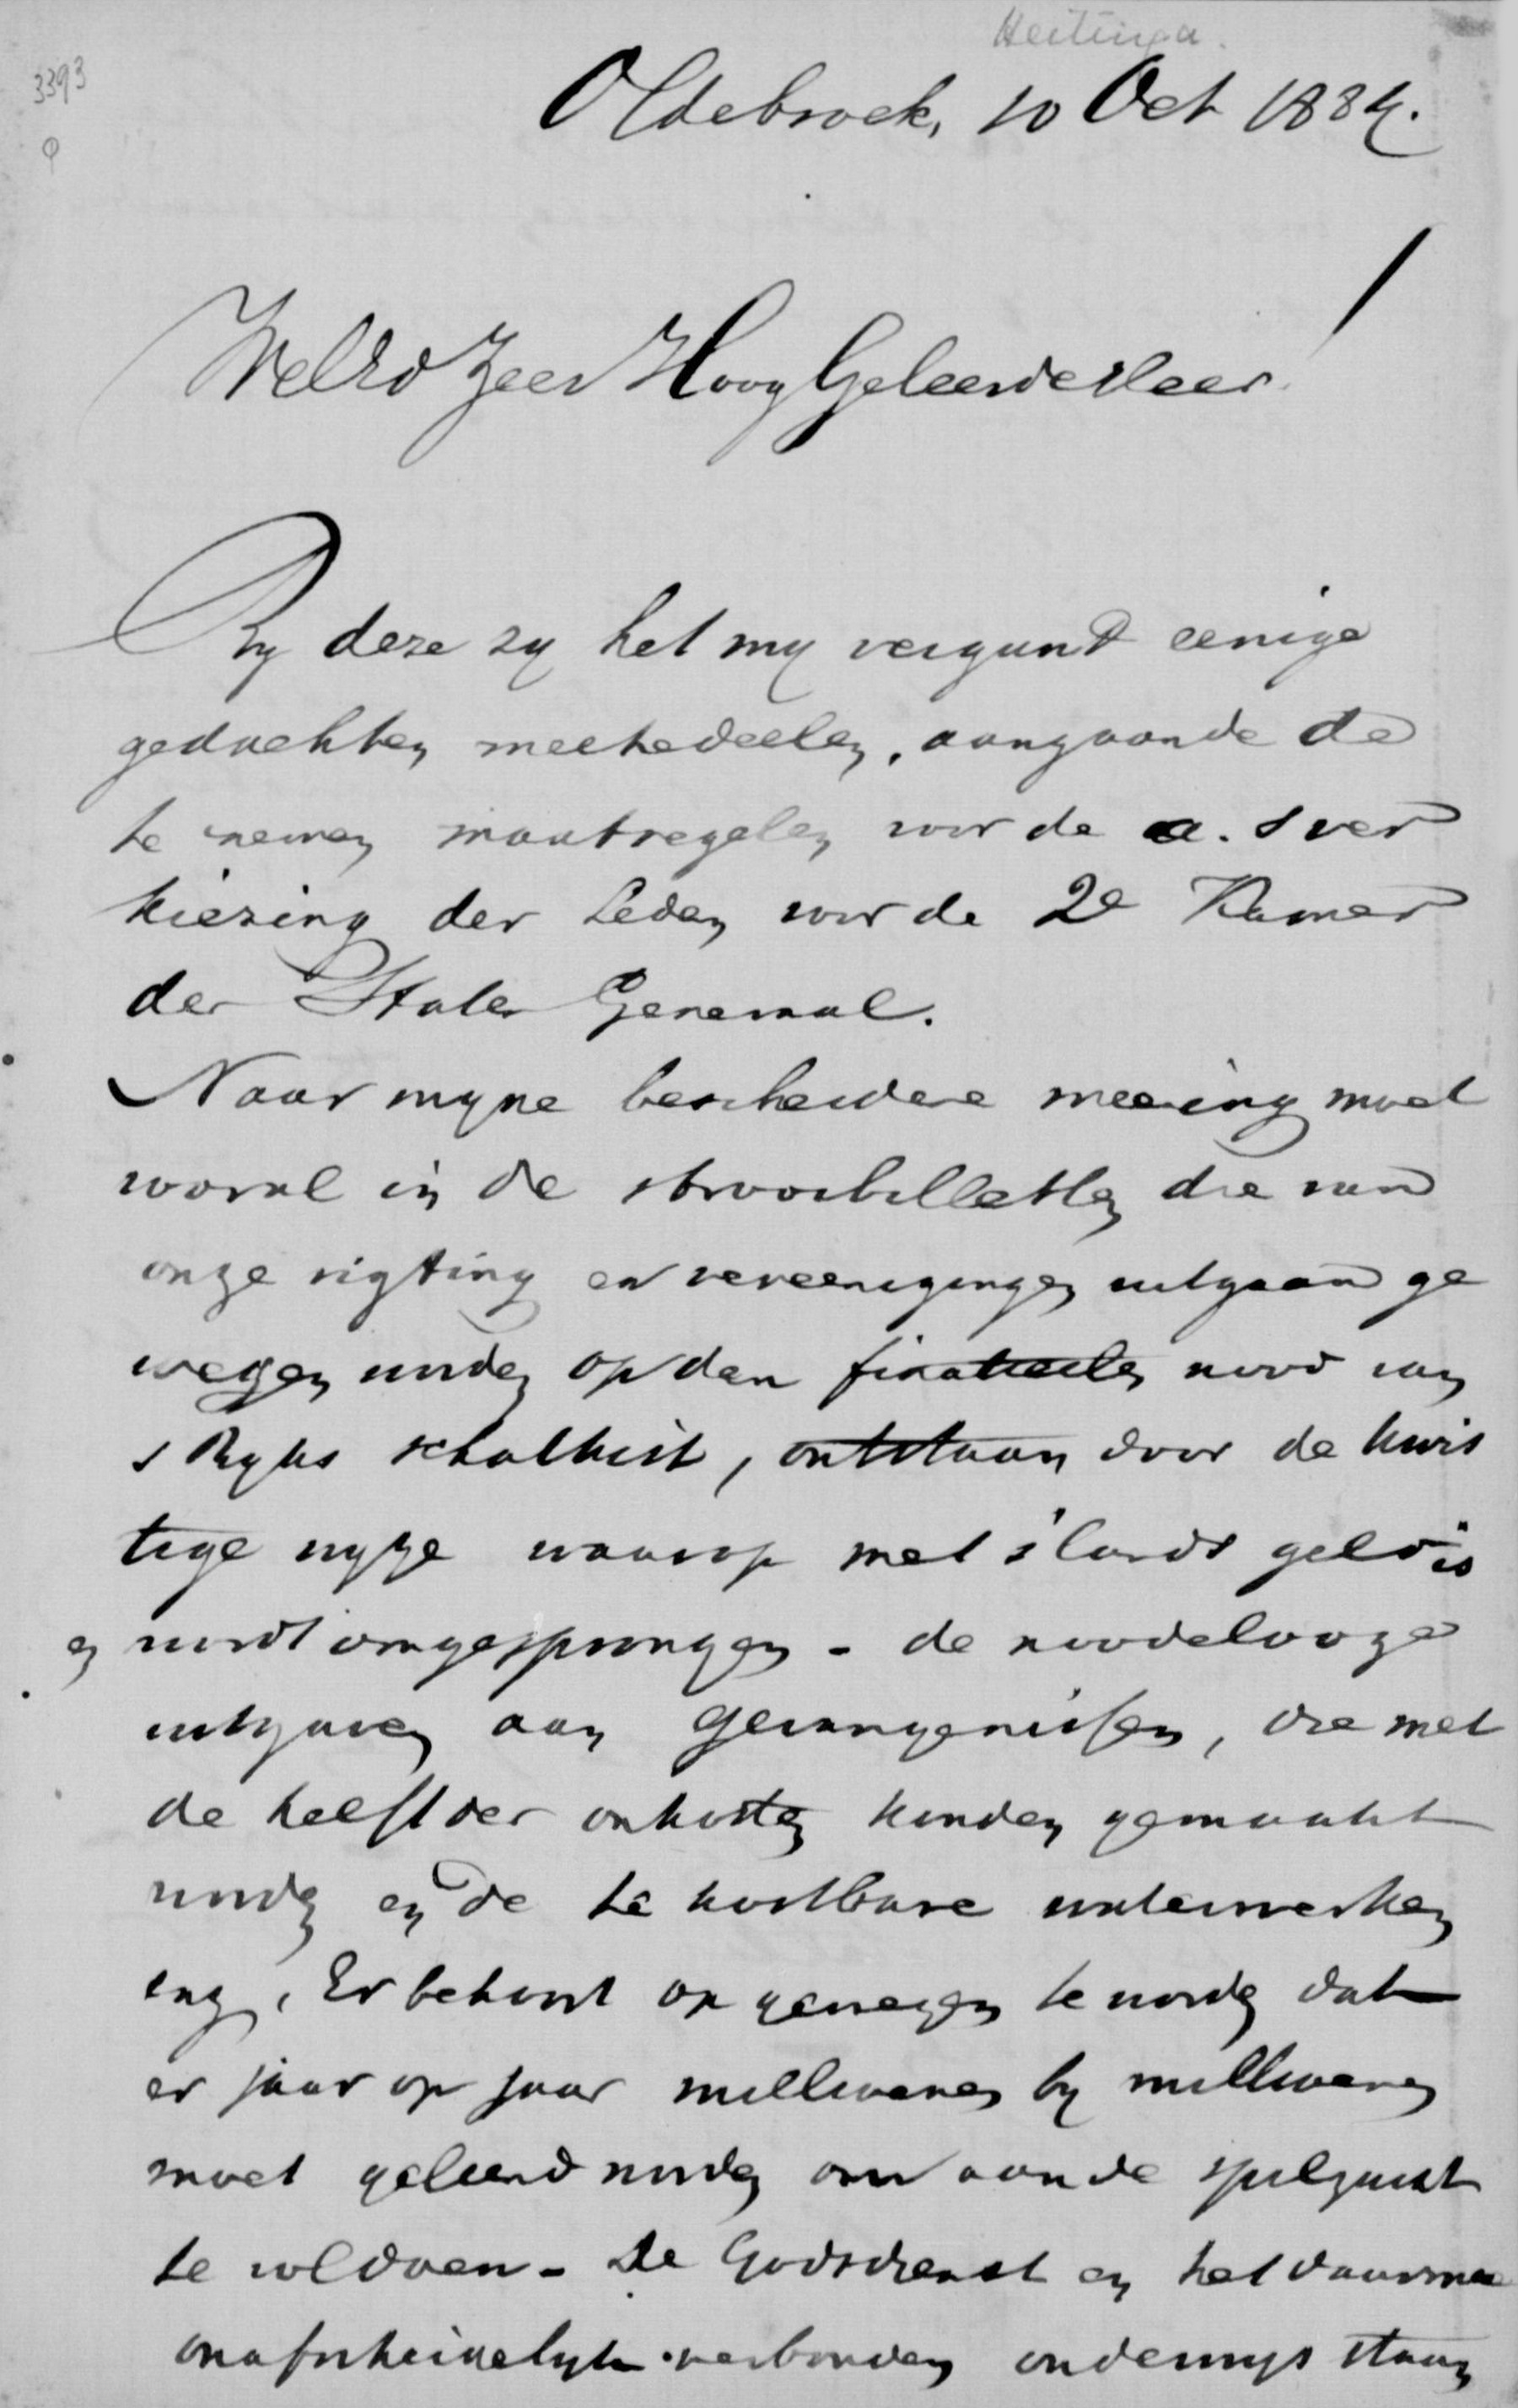 Heitinga.
3393
Oldebroek, 10 Oct 1884.
WelEd Zeer HoogGeleerde Heer!
By deze zy het my vergund eenige
gedachten meetedeelen, aangaande de
te nemen maatregelen voor de a.s ver
kiezing der Leden voor de 2e Kamer
der Staten Generaal.
Naar myne bescheidene meening moet
vooral in de strooibilletten die van
onze rigting en vereenigingen uitgaan ge
wezen worden op den finatieelen nood van
s Ryks schatkist, ontstaan door de kwis
tige wyze waarop met 's lands geld is
en wordt omgesprongen - de noodelooze
uitgaven aan gevangenissen, die met
de helft der onkosten konden gemaakt
worden en de te kostbare waterwerken
enz, Er behoort op gewezen te worden dat
er jaar op jaar millioenen by millioenen
moet geleend worden om aan de spilzucht
te voldoen - De Godsdienst en het daarmee
onafscheidelyk verbonden onderwys staan